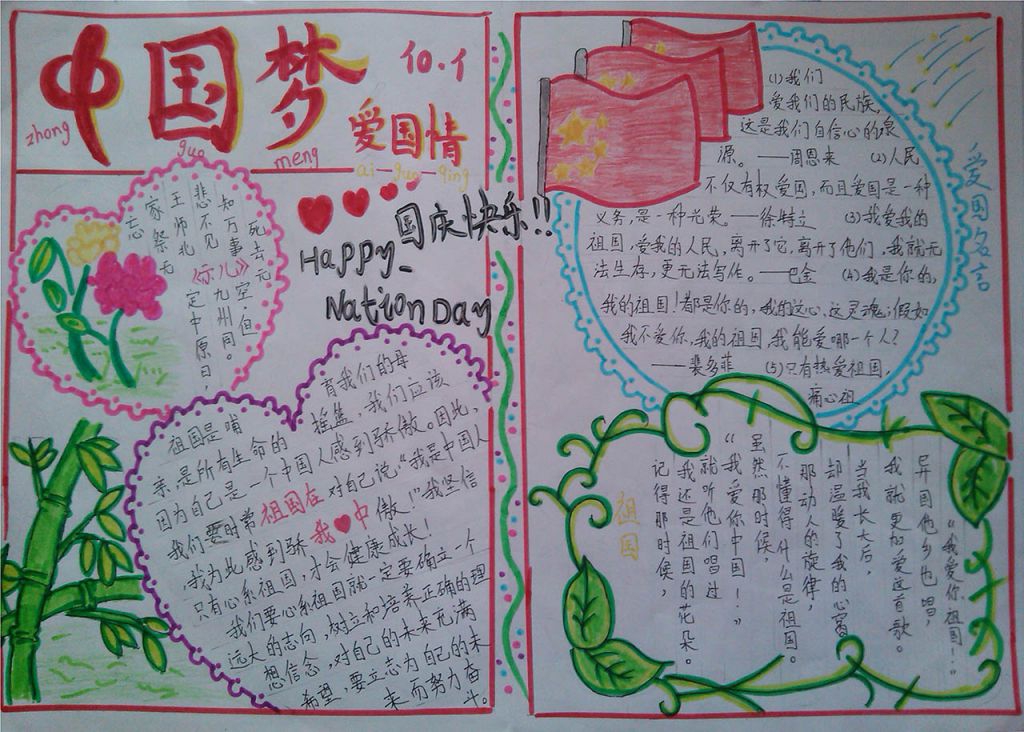 中国梦
zhong guo meng
10.1
爱国情
ai-guo-qing
国庆快乐!!
Happy_
Nation Day
《示儿》
死去元
知万事空,但
悲不见九州同。
王师北定中原日,
家祭无
忘
祖国是哺育我们的母
亲,是所有生命的摇篮,我们应该
因为自己是一个中国人感到骄傲。因此,
我们要时常祖国在对自己说:“我是中国人
,我为此感到骄我♥中傲!”我坚信
只有心系祖国,才会健康成长!
我们要心系祖国就一定要确立一个
远大的志向,树立和培养正确的理
想信念,对自己的未来充满
希望,要立志为自己的未
来而努力奋
斗。
(1)我们
爱我们的民族,
这是我们自信心的泉
源。——周恩来 (2)人民
不仅有权爱国,而且爱国是一种
义务,是一种光荣。——徐特立 (3)我爱我的
祖国,爱我的人民,离开了它,离开了他们,我就无
法生存,更无法写作。——巴金 (4)我是你的,
我的祖国!都是你的,我的这心、这灵魂;假如
我不爱你,我的祖国,我能爱哪一个人?
——裴多菲 (5)只有热爱祖国,
痛心祖
爱国名言
祖国
记得那时候,
我还是祖国的花朵。
就听他们唱过
“我爱你中国!”
虽然那时候,
不懂得什么是祖国。
那动人的旋律,
却温暖了我的心窝
当我长大后,
我就更加爱这首歌。
异国他乡也唱,
“我爱你祖国!”